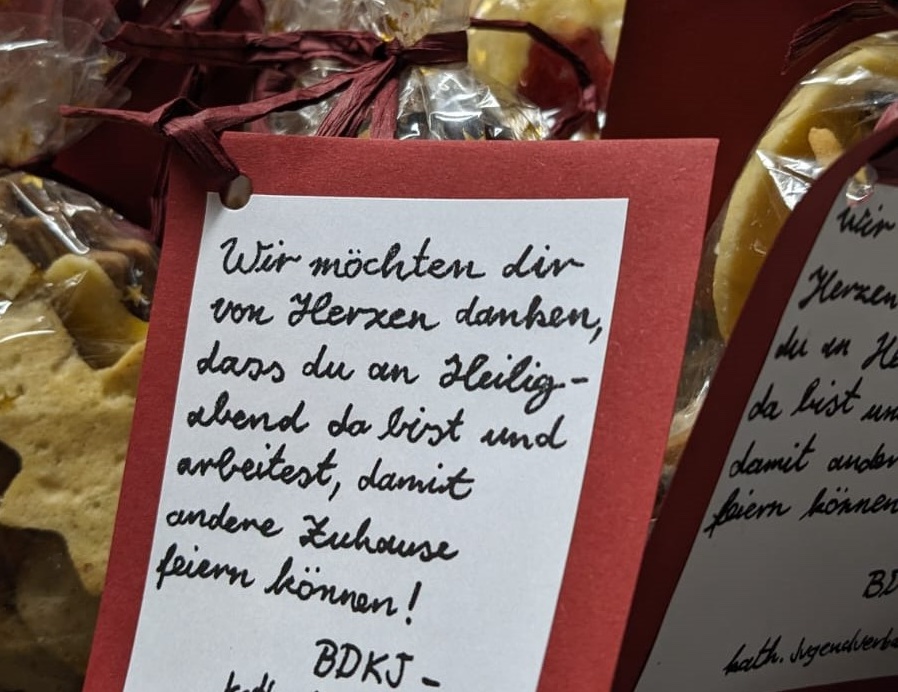 Wir möchten dir
von Herzen danken,
dass du an Heilig-
abend da bist und
arbeitest, damit
andere Zuhause
feiern können!
BDKJ -
kath.
Wir
Herzen
du an He
da bist un
damit ander
feiern können
BD
kath. Jugendverb